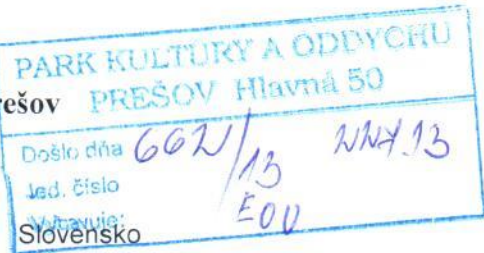 PARK KULTÚRY A ODDYCHU
rešov PREŠOV Hlavná 50
Došlo dňa 662/13
Jed. číslo
Vybavuje:
Slovensko